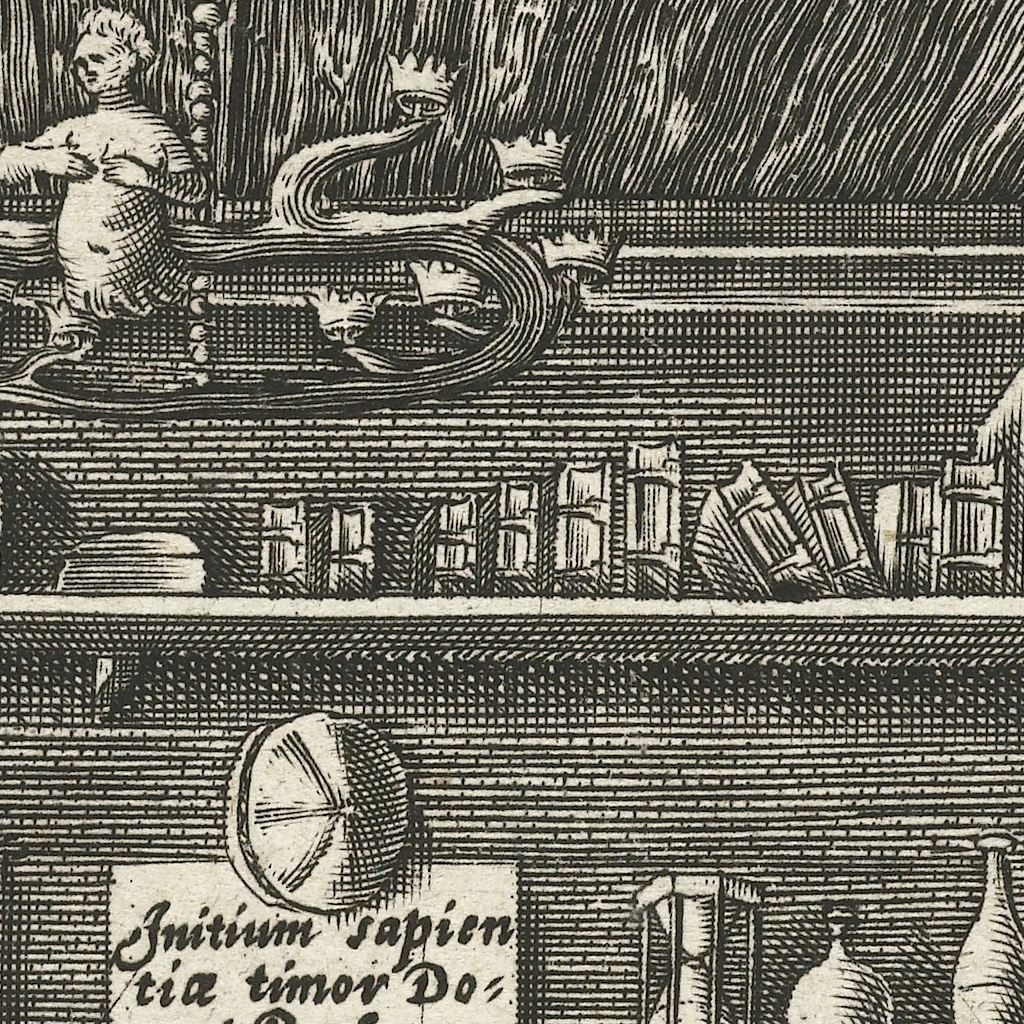 Initium sapien
tiæ timor Do-